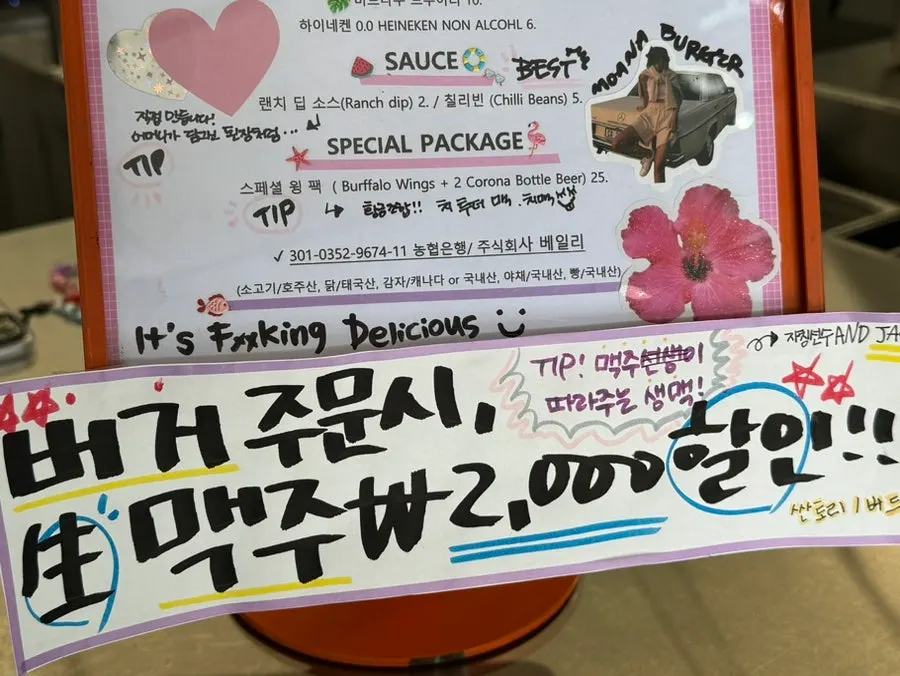 하이네켄 0.0 HEINEKEN NON ALCOHL 6.
SAUCE
BEST
MOANA BURGER
랜치 딥 소스(Ranch dip) 2. / 칠리빈 (Chilli Beans) 5.
직접 만듭니다!
어머니가 담그신 된장처럼...
TIP
SPECIAL PACKAGE
스페셜 윙 팩 ( Burffalo Wings + 2 Corona Bottle Beer) 25.
TIP
황금조합!!
✓ 301-0352-9674-11 농협은행/ 주식회사 베일리
(소고기/호주산, 닭/태국산, 감자/캐나다 or 국내산, 야채/국내산, 빵/국내산)
It's Fxxking Delicious
TIP! 맥주선생이
따라주는 생맥!
AND JA
버거 주문시,
生 맥주 ₩2,000 할인!!
싼토리 / 버드